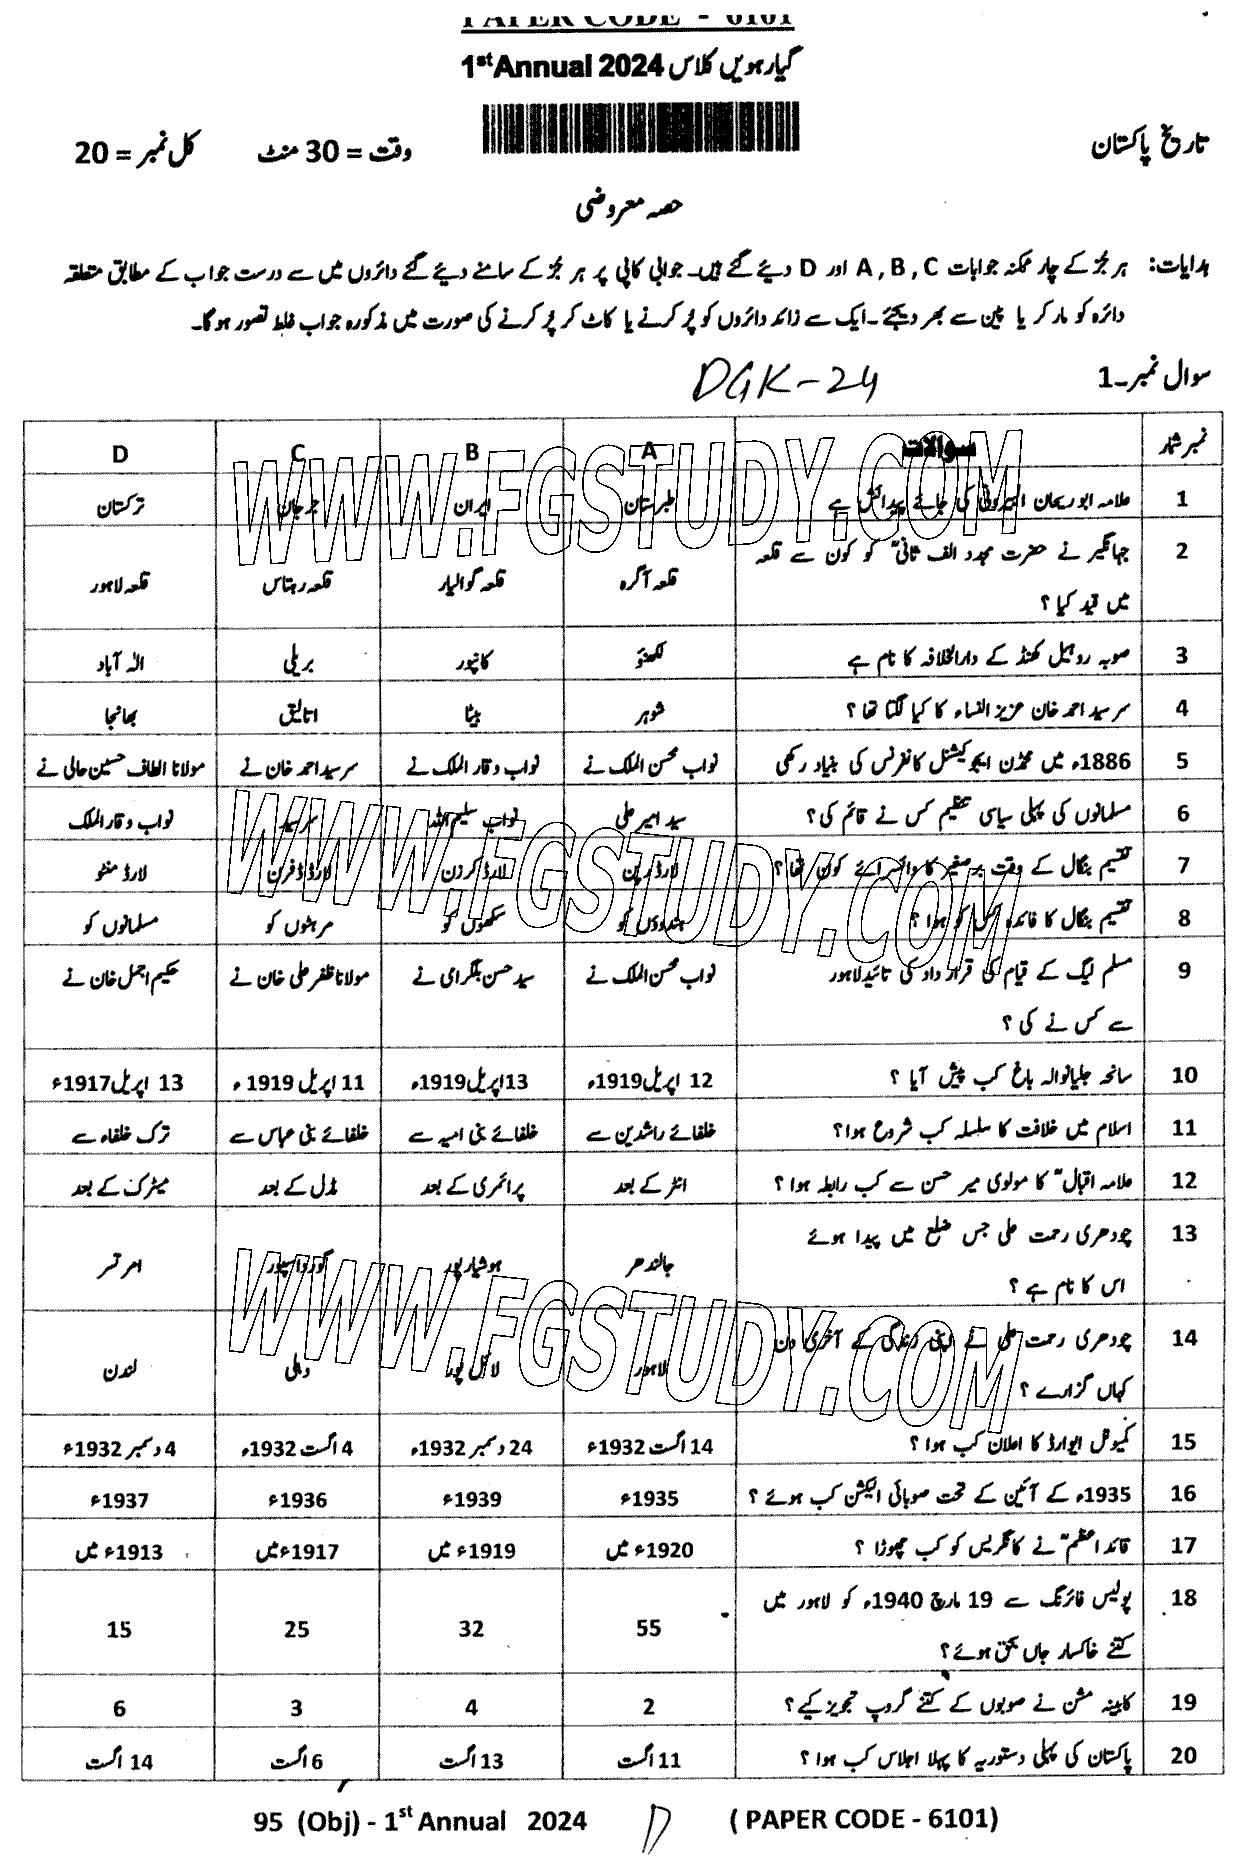 PAPER CODE - 6101
گیارہویں کلاس 1st Annual 2024
تاریخ پاکستان
وقت = 30 منٹ
کل نمبر = 20
حصہ معروضی
ہدایات: ہر جُز کے چار ممکنہ جوابات A , B , C اور D دیئے گئے ہیں۔ جوابی کاپی پر ہر جُز کے سامنے دیئے گئے دائروں میں سے درست جواب کے مطابق متعلقہ
دائرہ کو مارکر یا پین سے بھر دیجئے۔ ایک سے زائد دائروں کو پُر کرنے یا کاٹ کر پُر کرنے کی صورت میں مذکورہ جواب غلط تصور ہوگا۔
سوال نمبر۔1
DGK-24
نمبر شمار سوالات A B C D
1 علامہ ابو ریحان البیرونی کی جائے پیدائش ہے طبرستان ایران جرجان ترکستان
2 جہانگیر نے حضرت مجدد الف ثانیؒ کو کون سے قلعہ
میں قید کیا ؟ قلعہ آگرہ قلعہ گوالیار قلعہ رہتاس قلعہ لاہور
3 صوبہ روہیل کھنڈ کے دارالخلافہ کا نام ہے لکھنؤ کانپور بریلی الہ آباد
4 سر سید احمد خان عزیز النساء کا کیا لگتا تھا ؟ شوہر بیٹا اتالیق بھانجا
5 1886ء میں محمڈن ایجوکیشنل کانفرنس کی بنیاد رکھی نواب محسن الملک نے نواب وقار الملک نے سر سید احمد خان نے مولانا الطاف حسین حالی نے
6 مسلمانوں کی پہلی سیاسی تنظیم کس نے قائم کی؟ سید امیر علی نواب سلیم اللہ سر سید نواب وقار الملک
7 تقسیم بنگال کے وقت برصغیر کا وائسرائے کون تھا ؟ لارڈ رپن لارڈ کرزن لارڈ ڈفرن لارڈ منٹو
8 تقسیم بنگال کا فائدہ کس کو ہوا ؟ ہندوؤں کو سکھوں کو مرہٹوں کو مسلمانوں کو
9 مسلم لیگ کے قیام کی قرار داد کی تائید لاہور
سے کس نے کی ؟ نواب محسن الملک نے سید حسن بلگرامی نے مولانا ظفر علی خان نے حکیم اجمل خان نے
10 سانحہ جلیانوالہ باغ کب پیش آیا ؟ 12 اپریل 1919ء 13 اپریل 1919ء 11 اپریل 1919ء 13 اپریل 1917ء
11 اسلام میں خلافت کا سلسلہ کب شروع ہوا؟ خلفائے راشدین سے خلفائے بنی امیہ سے خلفائے بنی عباس سے ترک خلفاء سے
12 علامہ اقبالؒ کا مولوی میر حسن سے کب رابطہ ہوا ؟ انٹر کے بعد پرائمری کے بعد مڈل کے بعد میٹرک کے بعد
13 چودھری رحمت علی جس ضلع میں پیدا ہوئے
اس کا نام ہے ؟ جالندھر ہوشیارپور گورداسپور امرتسر
14 چودھری رحمت علی نے اپنی زندگی کے آخری دن
کہاں گزارے ؟ لاہور لائل پور دہلی لندن
15 کمیونل ایوارڈ کا اعلان کب ہوا ؟ 14 اگست 1932ء 24 دسمبر 1932ء 4 اگست 1932ء 4 دسمبر 1932ء
16 1935ء کے آئین کے تحت صوبائی الیکشن کب ہوئے ؟ 1935ء 1939ء 1936ء 1937ء
17 قائداعظمؒ نے کانگریس کو کب چھوڑا ؟ 1920ء میں 1919ء میں 1917ء میں 1913ء میں
18 پولیس فائرنگ سے 19 مارچ 1940ء کو لاہور میں
کتنے خاکسار جاں بحق ہوئے؟ 55 32 25 15
19 کابینہ مشن نے صوبوں کے کتنے گروپ تجویز کیے ؟ 2 4 3 6
20 پاکستان کی پہلی دستوریہ کا پہلا اجلاس کب ہوا ؟ 11 اگست 13 اگست 6 اگست 14 اگست
WWW.FGSTUDY.COM
WWW.FGSTUDY.COM
WWW.FGSTUDY.COM
95 (Obj) - 1st Annual 2024 D (PAPER CODE - 6101)